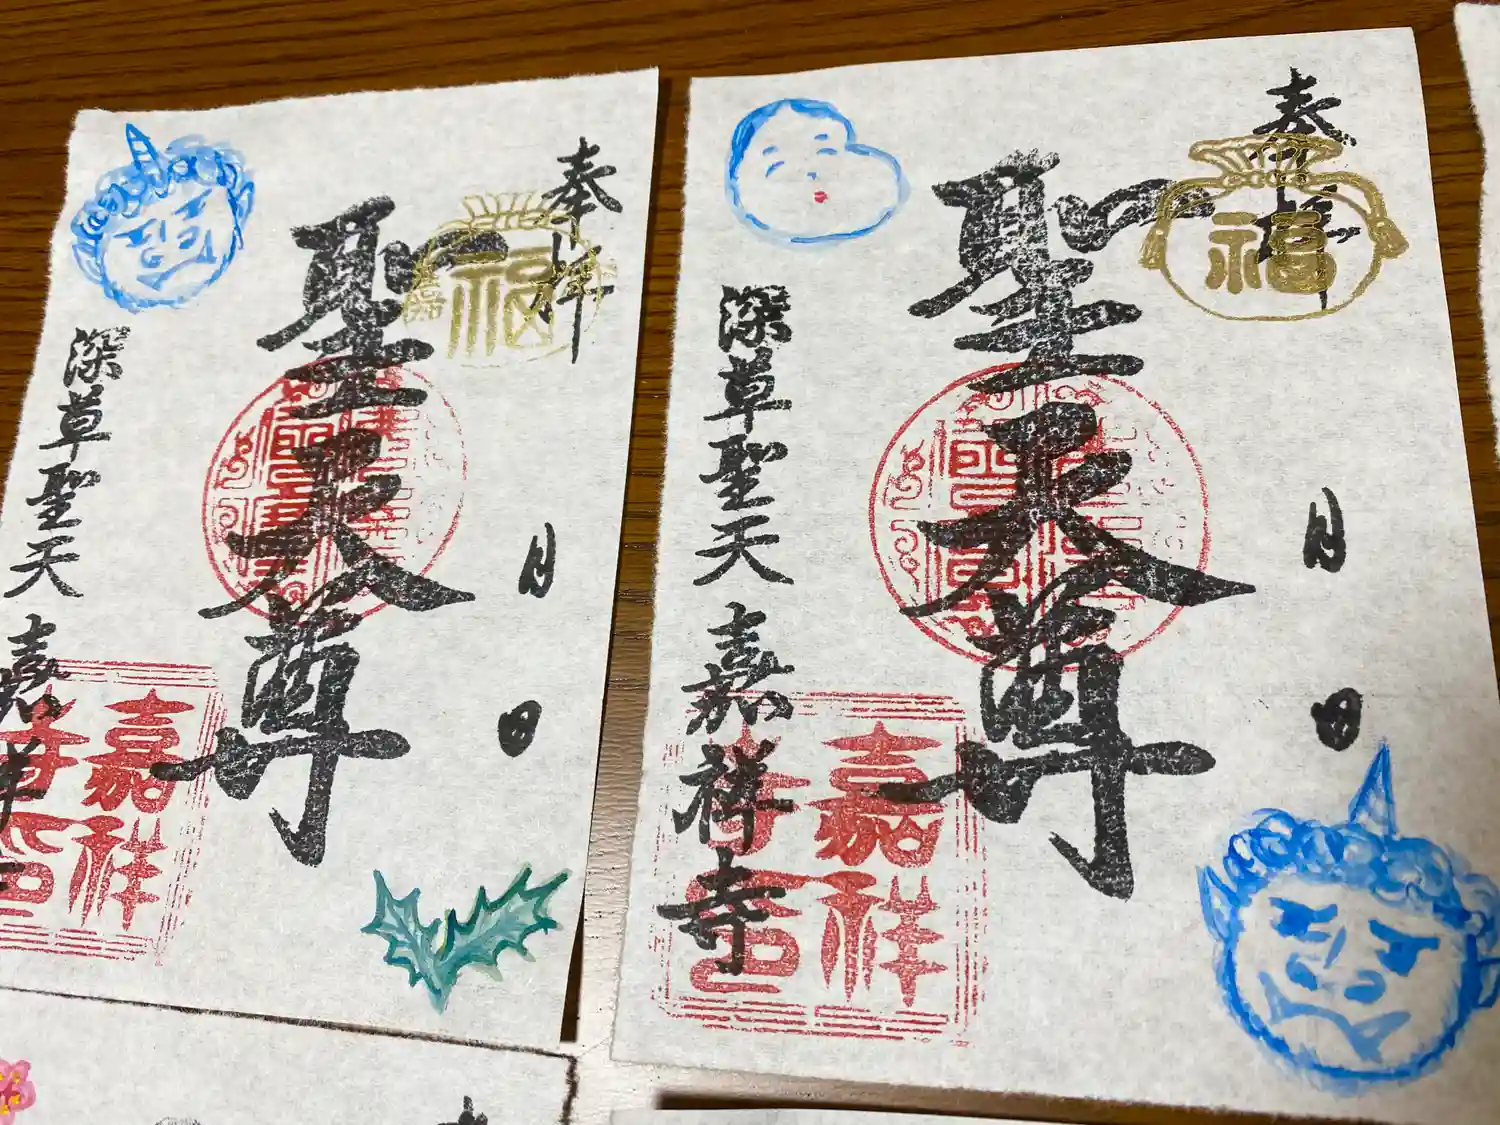 奉拝
福
聖天尊
月
日
深草聖天
嘉祥寺
嘉祥
寺印
奉拝
福
聖天尊
月
日
深草聖天
嘉祥寺
嘉祥
寺印